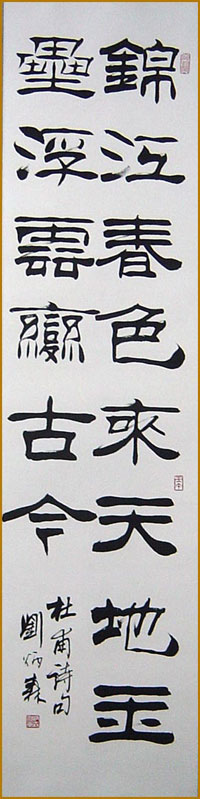 錦江春色來天地玉
壘浮雲變古今
杜甫詩句
劉炳森